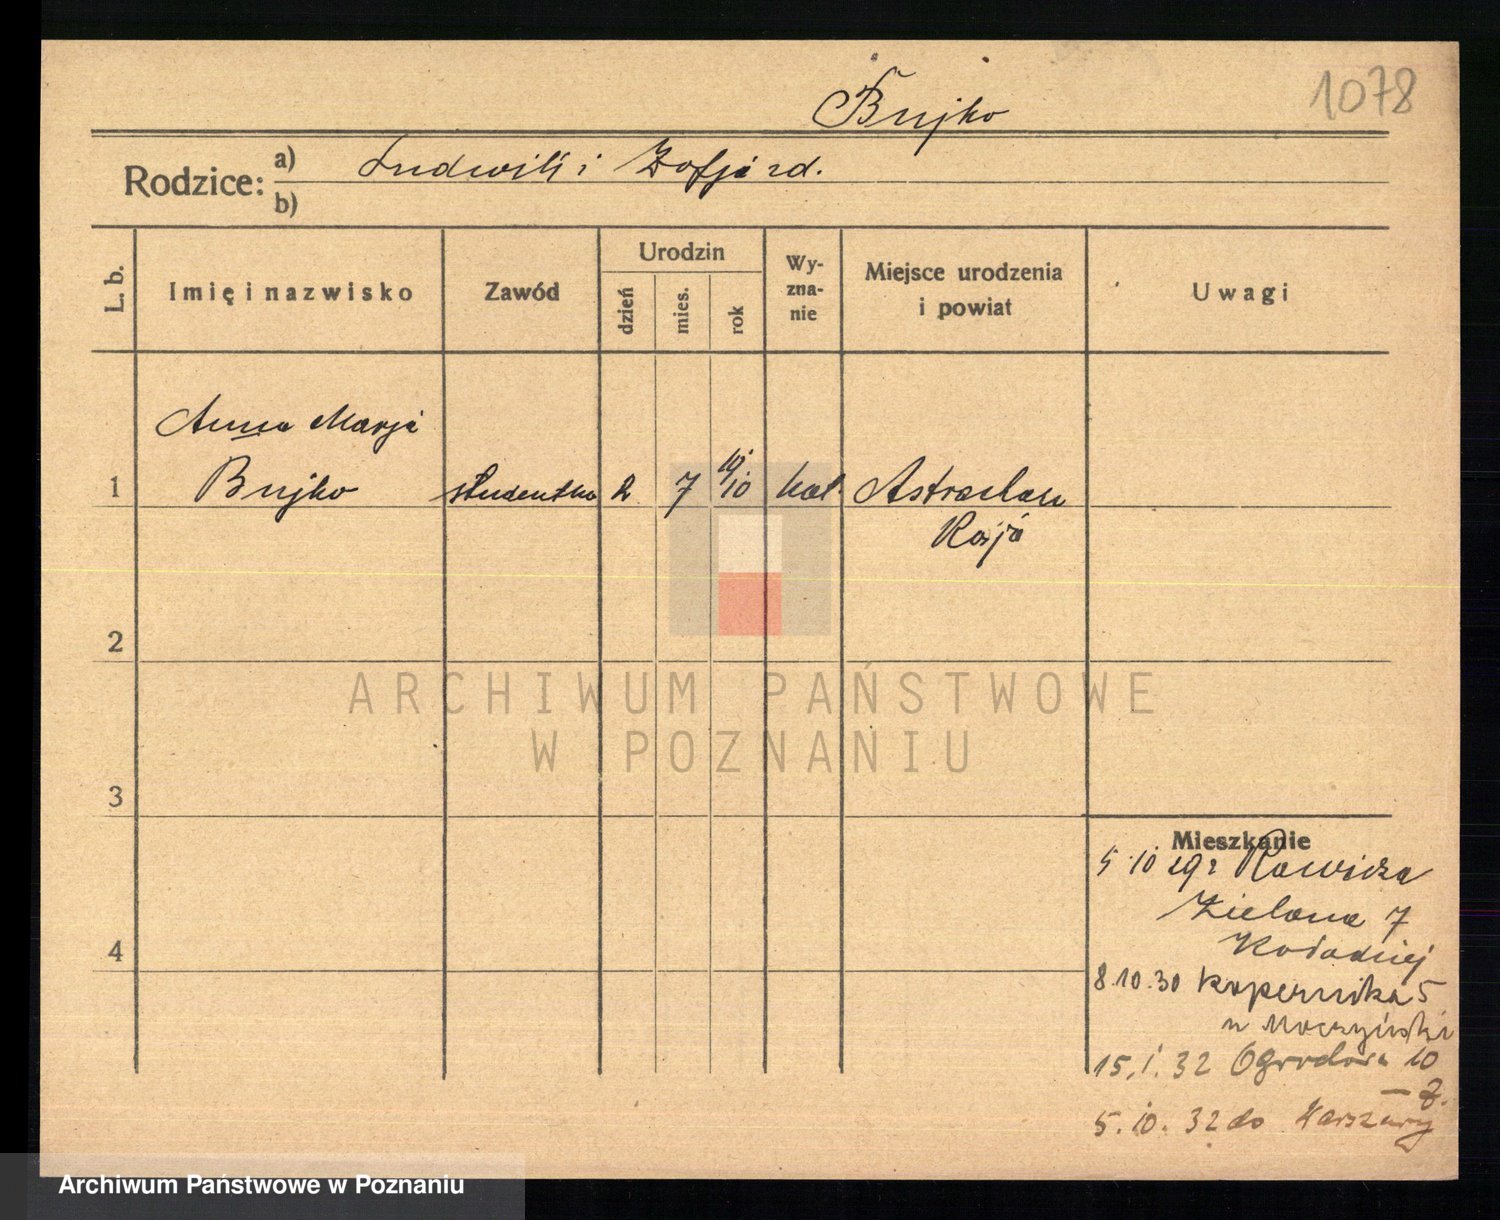 Bujko
1078
Rodzice:
a) Ludwik i Zofja zd.
b)
L. b.
Imię i nazwisko
Zawód
Urodzin
dzień
mies.
rok
Wy-
zna-
nie
Miejsce urodzenia
i powiat
Uwagi
Anna Marja
1 Bujko studentka 2 7 19/10 kat Astrachan
Rosja
2
ARCHIWUM PAŃSTWOWE
W POZNANIU
3
Mieszkanie
5 10 29 z Rawicza
Zielona 7
4
8.10.30 Kopernika 5
15.1.32 Ogrodowa 10
5.10.32 do Warszawy
Archiwum Państwowe w Poznaniu